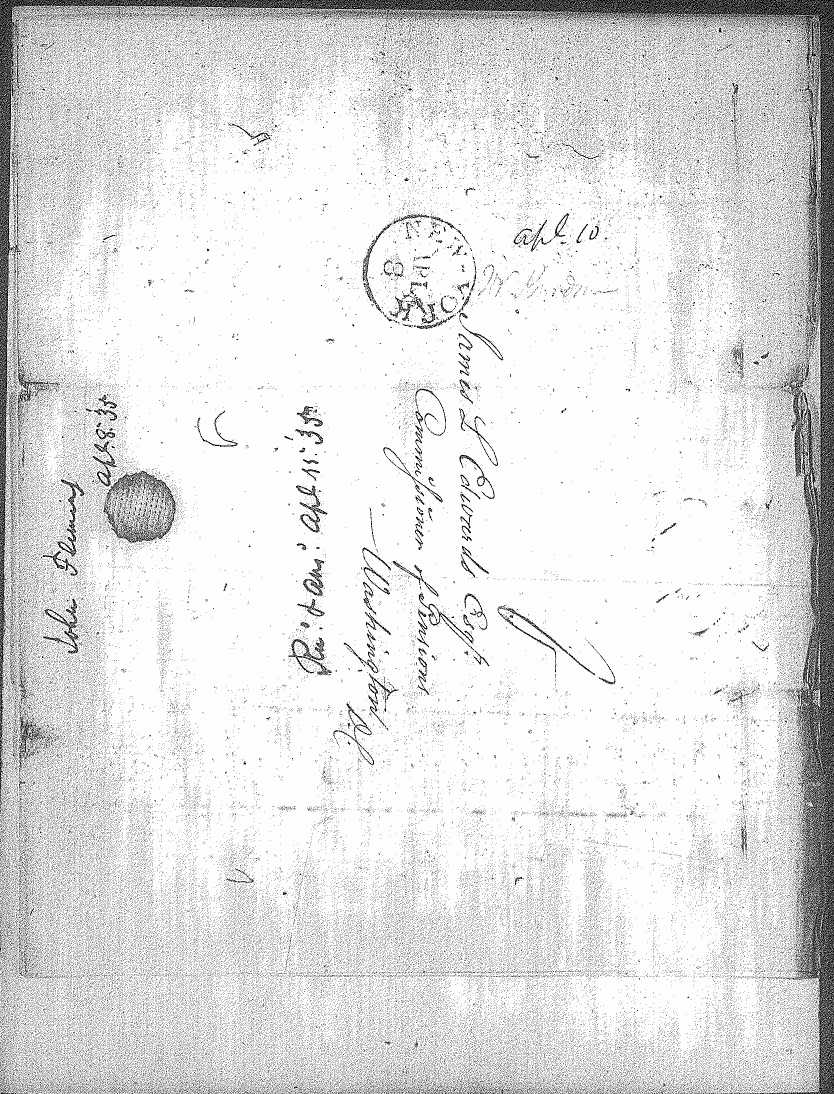 apl. 10.
NEW-YORK
APL
8
James L Edwards Esqr.
Commissioner of Pensions
Washington
DC
Rec: & ans: apl 11: 35.
John Fleming
apl. 8. 35